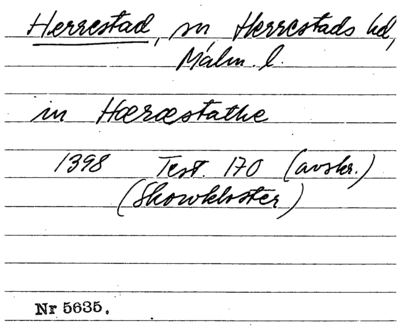 Herrestad, sn Herrestads hd,
Malm. l.
in Hæræstathe
1398 Test. 170 (avskr.)
(Skowkloster)
Nr 5635.